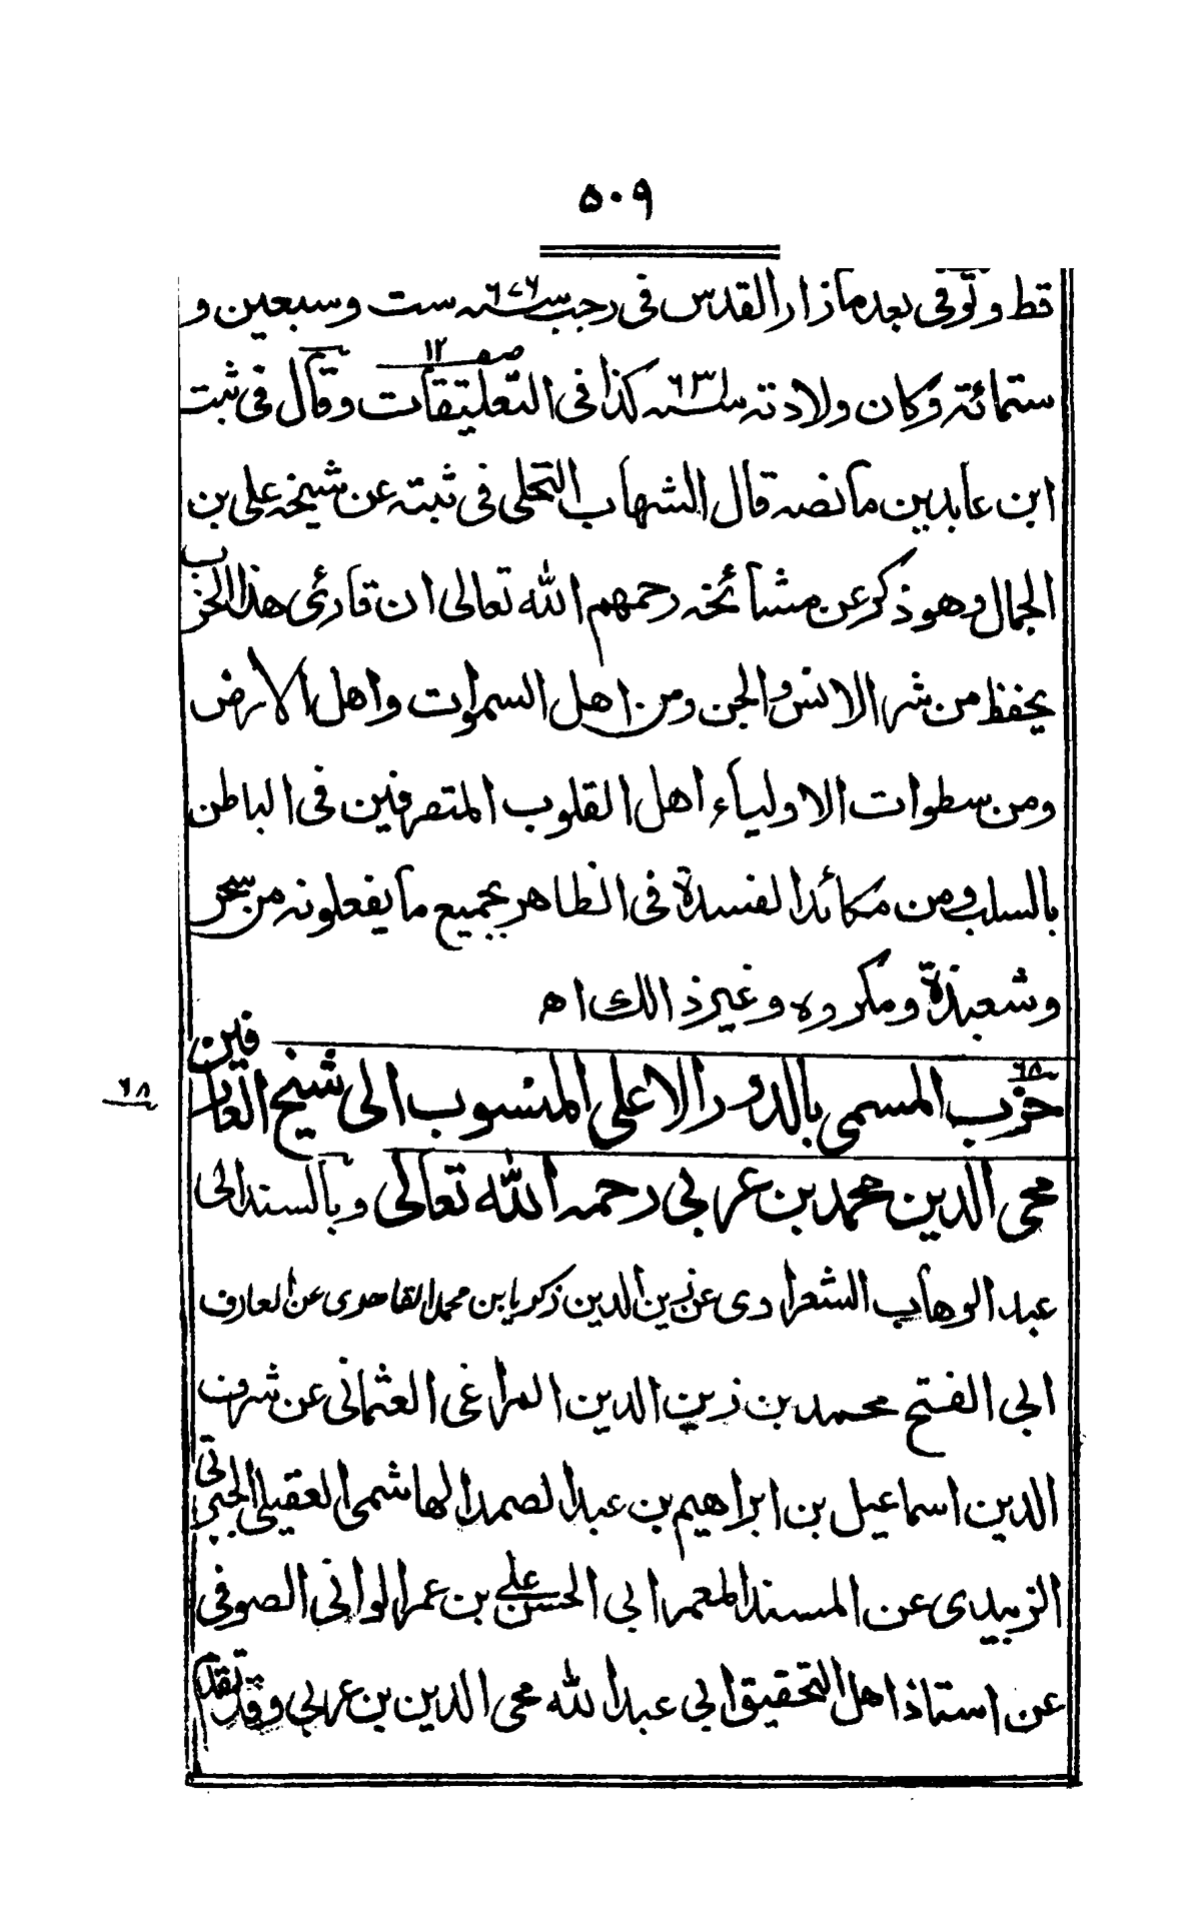 ٥٠٩
قط وتوفى بعد ما زار القدس فى رجب سنه ٦٧٦ ست وسبعين و
ستمائة وكان ولادته سنه ٦٣١ كذا فى التعليقات صه ١٢ وقال فى ثبت
ابن عابدين ما نصه قال الشهاب النخلى فى ثبته عن شيخه على بن
الجمال وهو ذكر عن مشائخه رحمهم الله تعالى ان قارئ هذا الحزب
يحفظ من شر الانس والجن ومن اهل السموات واهل الارض
ومن سطوات الاولياء اهل القلوب المتصرفين فى الباطن
بالسلب ومن مكائد الفسدة فى الظاهر بجميع ما يفعلونه من سحر
وشعبذة ومكروه وغير ذالك اه
٦٨ حزب المسمى بالدور الاعلى المنسوب الى شيخ العارفين
٦٨
محى الدين محمد بن عربى رحمه الله تعالى وبالسند الى
عبد الوهاب الشعراوى عن زين الدين زكريا بن محمد القاهرى عن العارف
ابى الفتح محمد بن زين الدين المراغى العثمانى عن شرف
الدين اسماعيل بن ابراهيم بن عبد الصمد الهاشمى العقيلى الجبرتى
الزبيدى عن المسند المعمر ابى الحسن على بن عمر الوانى الصوفى
عن استاذ اهل التحقيق ابى عبد الله محى الدين بن عربى وقد تقدم